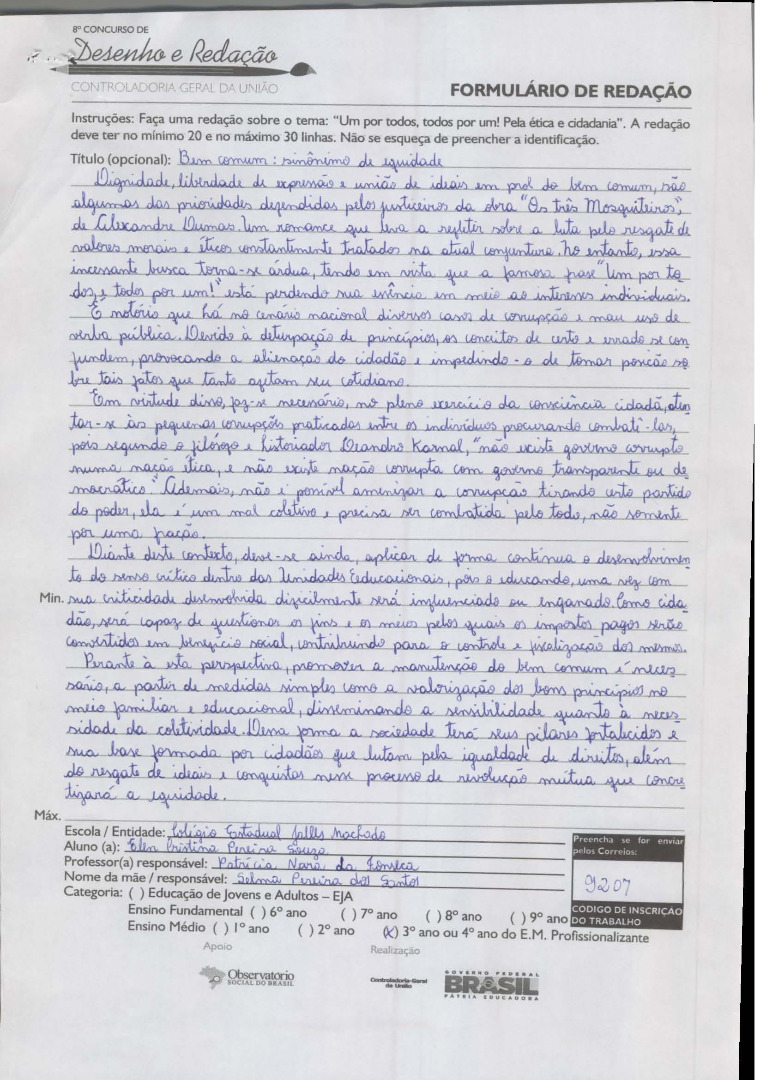 8º CONCURSO DE
Desenho e Redação
CONTROLADORIA GERAL DA UNIÃO
FORMULÁRIO DE REDAÇÃO
Instruções: Faça uma redação sobre o tema: "Um por todos, todos por um! Pela ética e cidadania". A redação
deve ter no mínimo 20 e no máximo 30 linhas. Não se esqueça de preencher a identificação.
Título (opcional): Bem comum: sinônimo de equidade
Dignidade, liberdade de expressão e união de ideais em prol do bem comum, são
algumas das prioridades defendidas pelos justiceiros da obra "Os três Mosquiteiros",
de Alexandre Dumas. Um romance que leva a refletir sobre a luta pelo resgate de
valores morais e éticos constantemente tratados na atual conjuntura. No entanto, essa
incessante busca torna-se árdua, tendo em vista que a famosa frase "Um por to
dos, e todos por um!" está perdendo sua essência em meio ao interesses individuais.
É notório que há no cenário nacional diversos casos de corrupção e mau uso de
verba pública. Devido à deturpação de princípios, os conceitos de certo e errado se con
fundem, provocando a alienação do cidadão e impedindo-o de tomar posição so
bre tais fatos que tanto afetam seu cotidiano.
Em virtude disso, faz-se necessário, no pleno exercício da consciência cidadã, aten
tar-se às pequenas corrupções praticadas entre os indivíduos procurando combatê-las,
pois segundo o filósofo e historiador Leandro Karnal, "não existe governo corrupto
numa nação ética, e não existe nação corrupta com governo transparente ou de
mocrático". Ademais, não é possível amenizar a corrupção tirando certo partido
do poder, ela é um mal coletivo e precisa ser combatida pelo todo, não somente
por uma fração.
Diante deste contexto, deve-se ainda, aplicar de forma contínua o desenvolvimen
to do senso crítico dentro das Unidades Eeducacionais, pois o educando, uma vez com
Min. sua criticidade desenvolvida dificilmente será influenciado ou enganado. Como cida
dão, será capaz de questionar os fins e os meios pelos quais os impostos pagos serão
convertidos em benefício social, contribuindo para o controle e fiscalização dos mesmos.
Perante à esta perspectiva, promover a manutenção do bem comum é neces
sário, a partir de medidas simples como a valorização dos bons princípios no
meio familiar e educacional, disseminando a sensibilidade quanto à neces
sidade da coletividade. Dessa forma a sociedade terá seus pilares fortalecidos e
sua base formada por cidadãos que lutam pela igualdade de direitos, além
do resgate de ideais e conquistas nesse processo de revolução mútua que concre
tizará a equidade.
Máx.
Escola / Entidade: Colégio Estadual Jalles Machado
Aluno (a): Elen Cristina Pereira Souza
Professor(a) responsável: Patrícia Nara da Fonseca
Nome da mãe / responsável: Selma Pereira dos Santos
Categoria: ( ) Educação de Jovens e Adultos – EJA
Ensino Fundamental ( ) 6º ano ( ) 7º ano ( ) 8º ano ( ) 9º ano
Ensino Médio ( ) 1º ano ( ) 2º ano (x) 3º ano ou 4º ano do E.M. Profissionalizante
Preencha se for enviar
pelos Correios:
9207
CODIGO DE INSCRIÇÃO
DO TRABALHO
Apoio
Realização
Observatório
SOCIAL DO BRASIL
Controladoria-Geral
da União
GOVERNO FEDERAL
BRASIL
PÁTRIA EDUCADORA